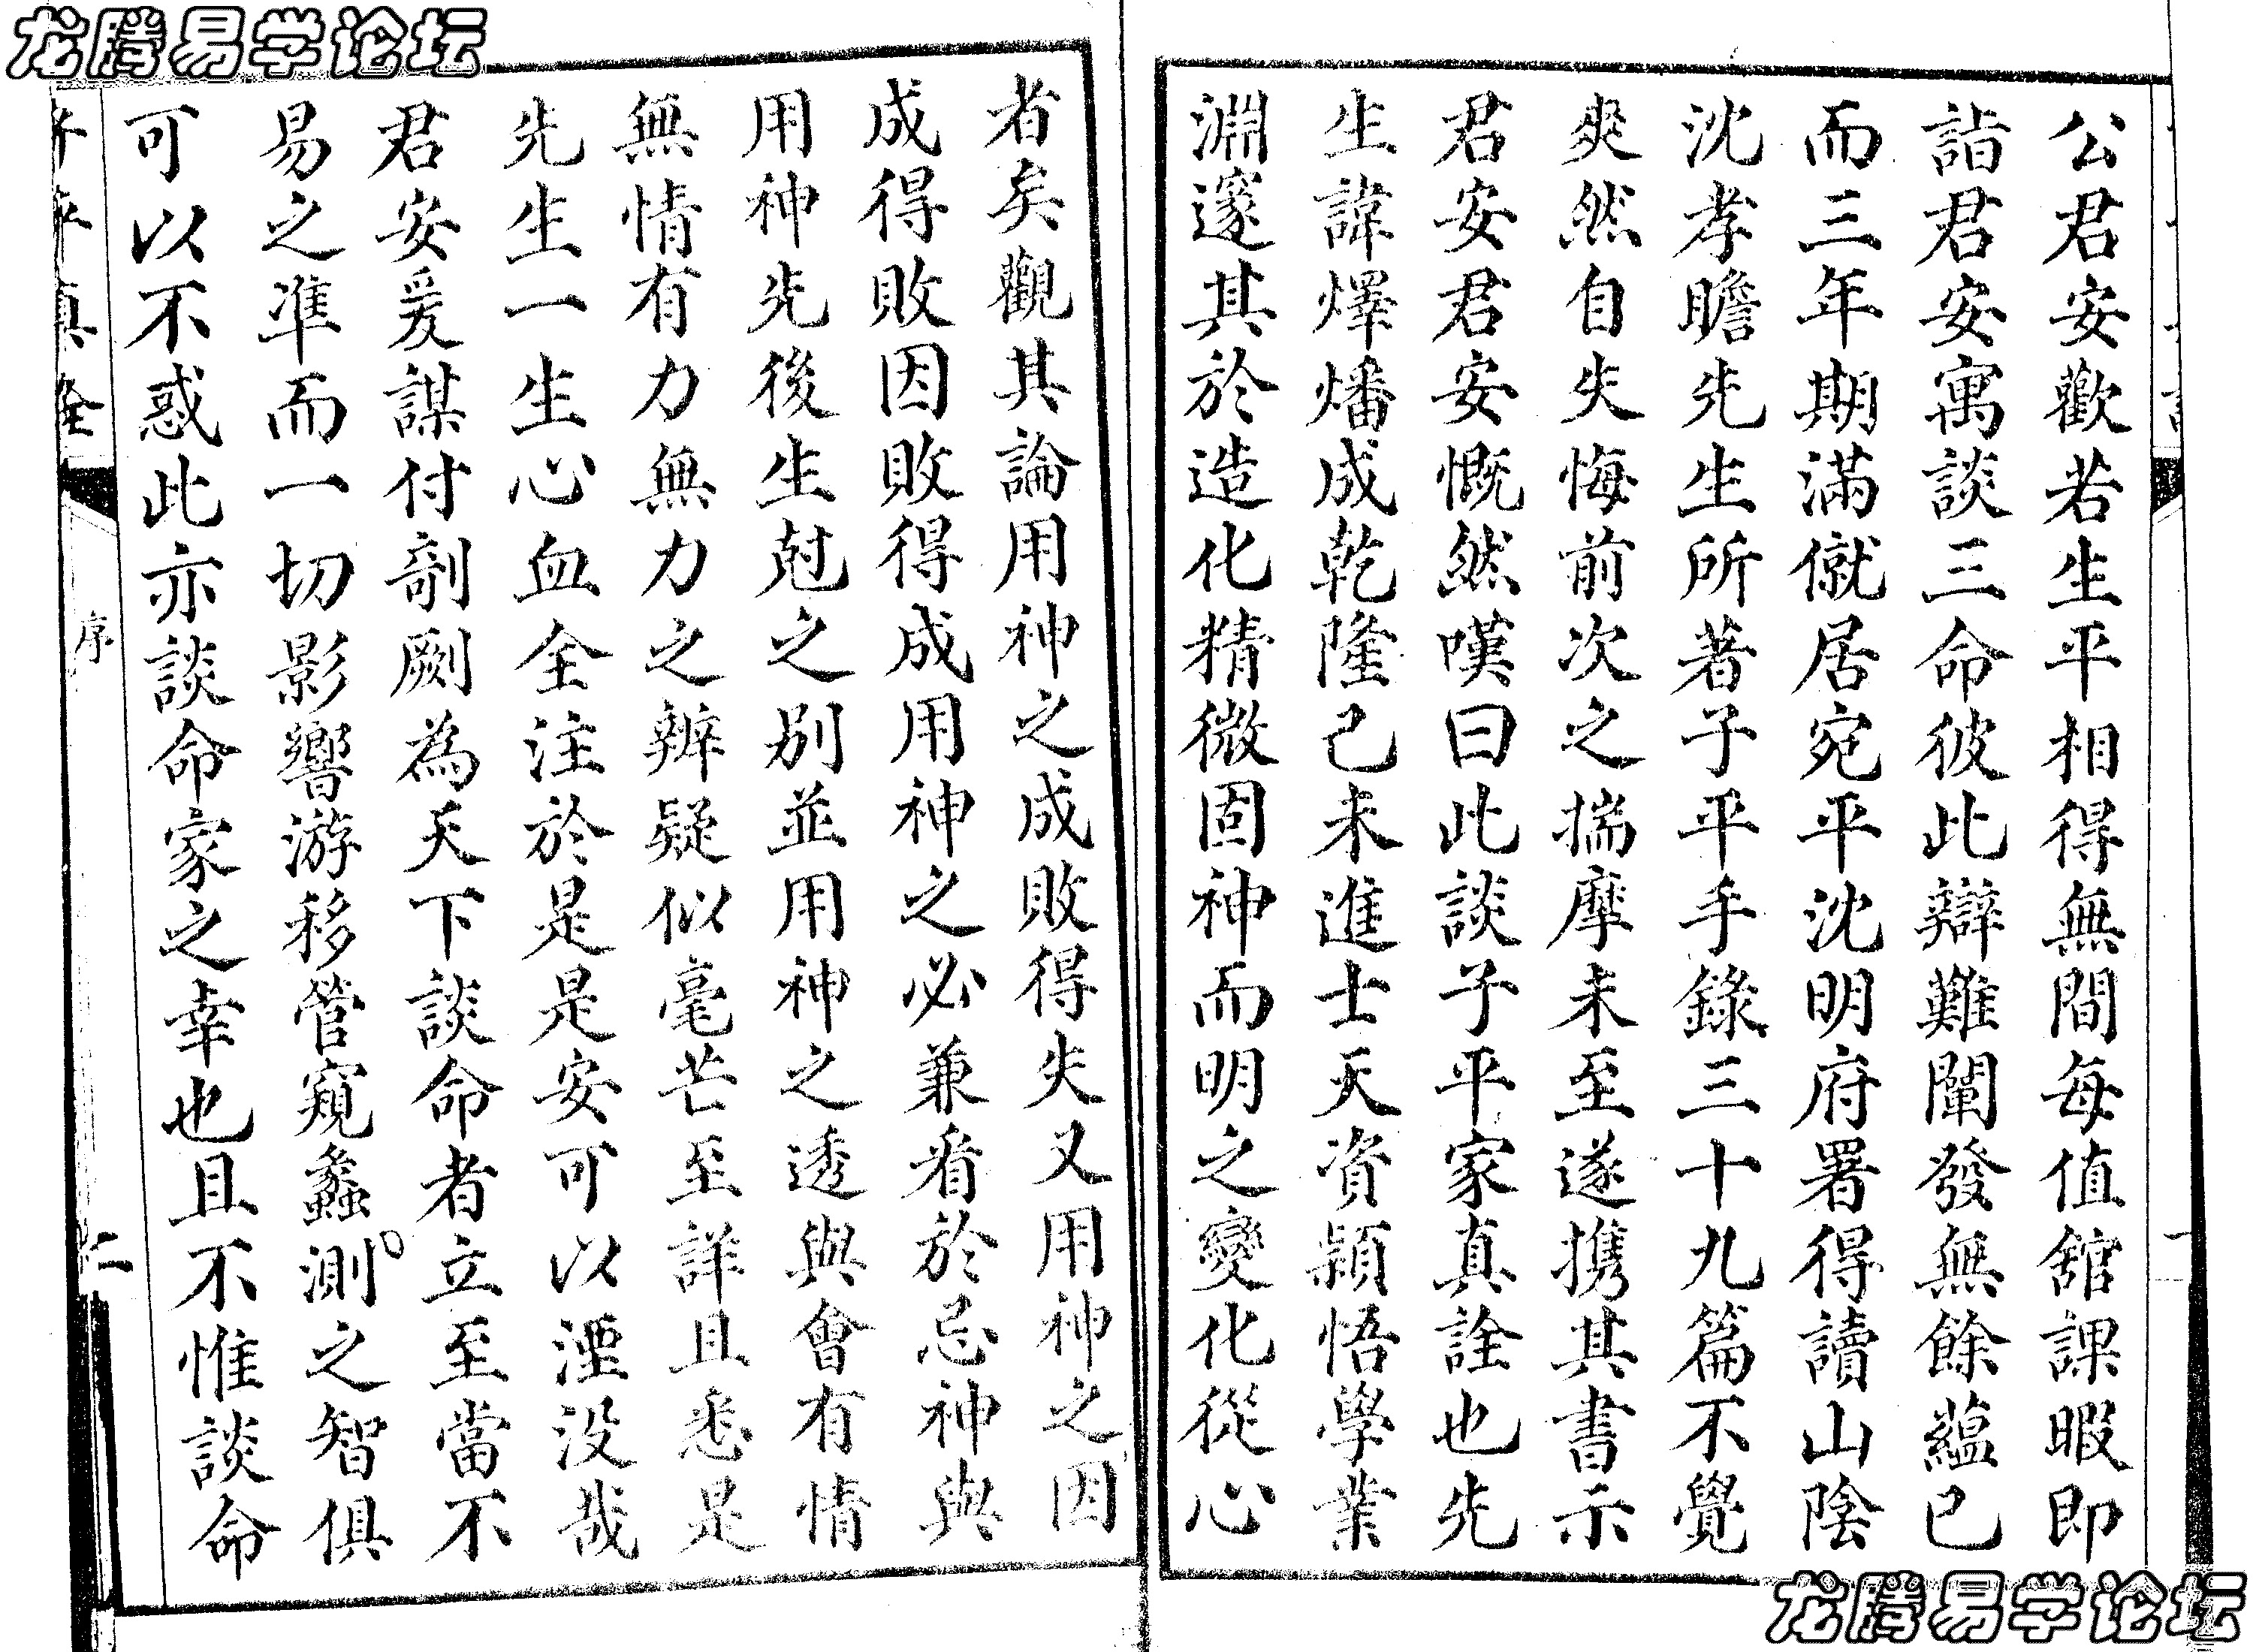 龙腾易学论坛
公君安歡若生平相得無間每值舘課暇即
詣君安寓談三命彼此辯難闡發無餘蘊已
而三年期滿僦居宛平沈明府署得讀山陰
沈孝瞻先生所著子平手錄三十九篇不覺
爽然自失悔前次之揣摩未至遂携其書示
君安君安慨然嘆曰此談子平家真詮也先
生諱燡燔成乾隆己未進士天資頴悟學業
淵邃其於造化精微固神而明之變化從心
者矣觀其論用神之成敗得失又用神之因
成得敗因敗得成用神之必兼看於忌神與
用神先後生尅之别並用神之透與會有情
無情有力無力之辨疑似毫芒至詳且悉是
先生一生心血全注於是是安可以湮没哉
君安爰謀付剞劂為天下談命者立至當不
易之準而一切影響游移管窺蠡測之智俱
可以不惑此亦談命家之幸也且不惟談命
子平真全
序
二
一
龙腾易学论坛